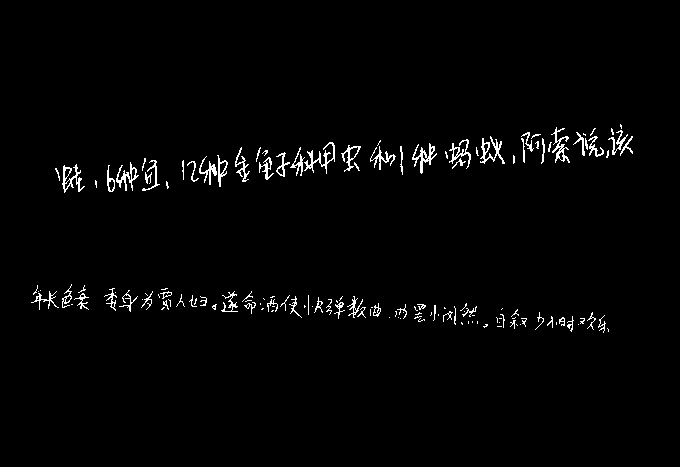 蛙、6种鱼、12种金龟子科甲虫和1种蚂蚁,阿索说,该
年长色衰 委身为贾人妇。遂命酒使快弹数曲.曲罢小闵然。自叙少小时欢乐